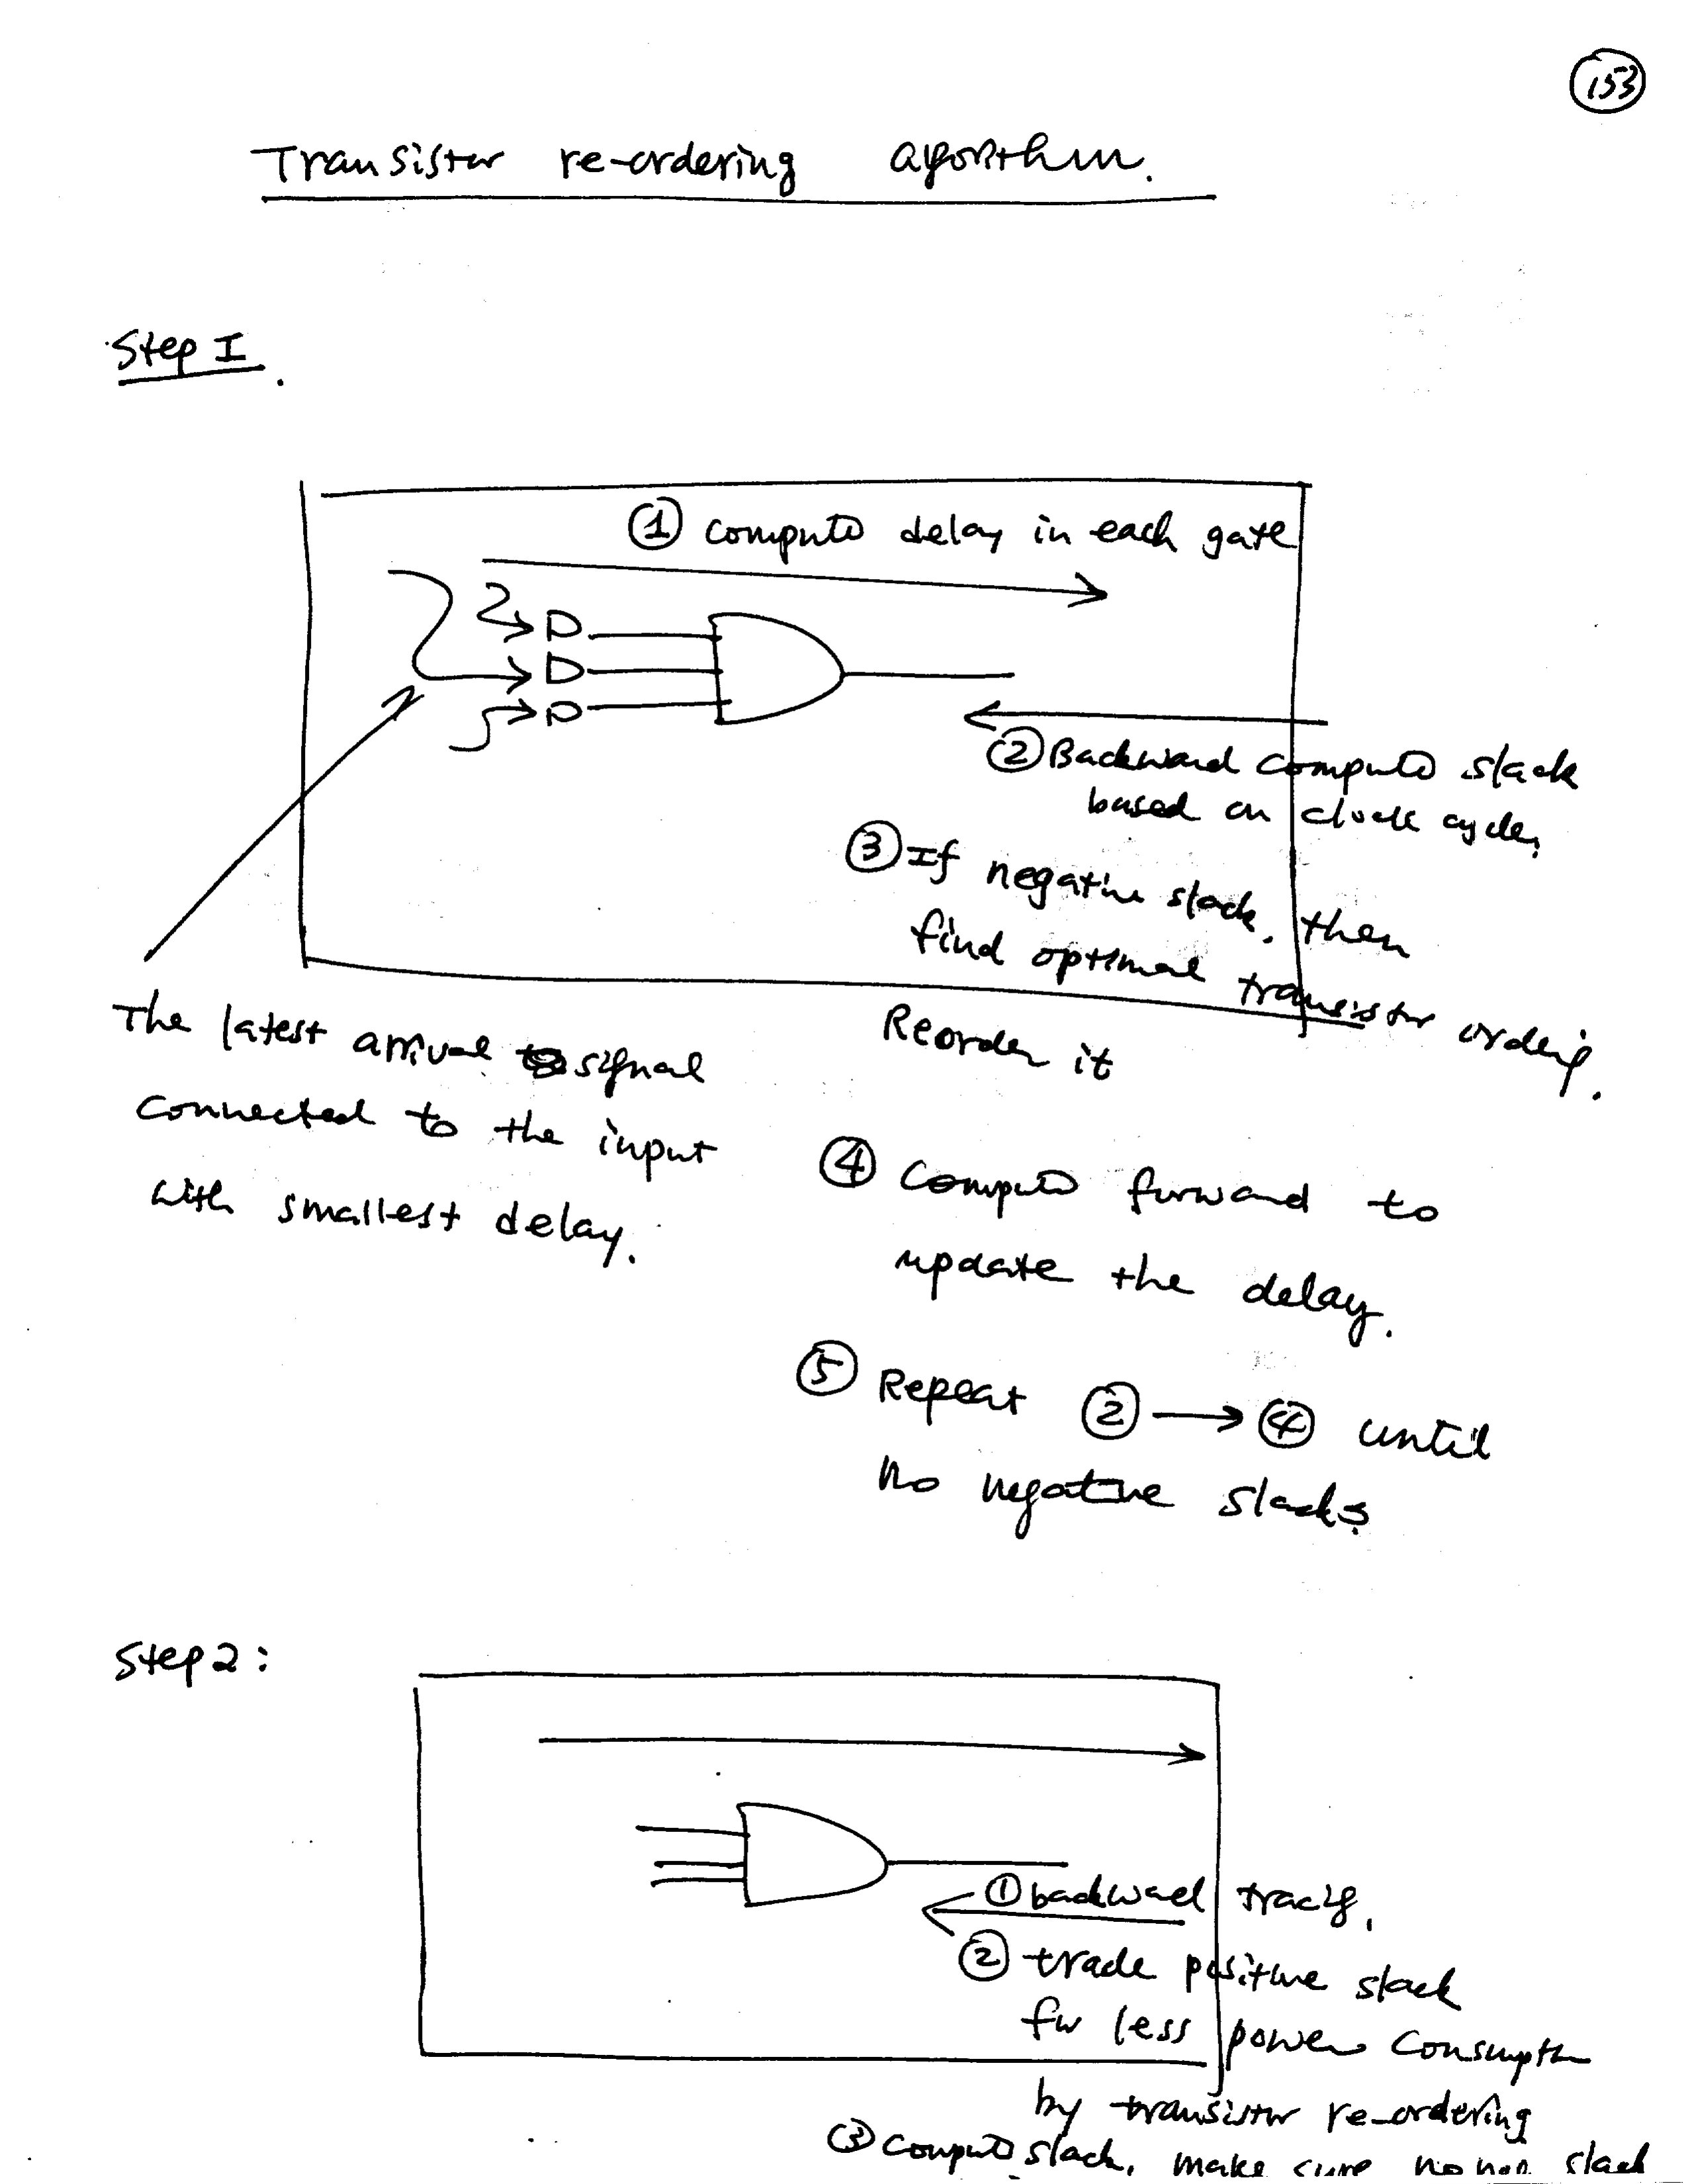 153
Transistor re-ordering algorithm.
Step I.
① compute delay in each gate
② Backward compute slack
based on clock cycle.
③ If negative slack, then
find optimal transistor ordering.
Reorder it
The latest arrival signal
connected to the input
with smallest delay.
④ Compute forward to
update the delay.
⑤ Repeat ② → ④ until
no negative slacks
Step 2:
① backward tracing.
② trade positive slack
for less power consumption
by transistor re-ordering
③ compute slack, make sure no neg slack